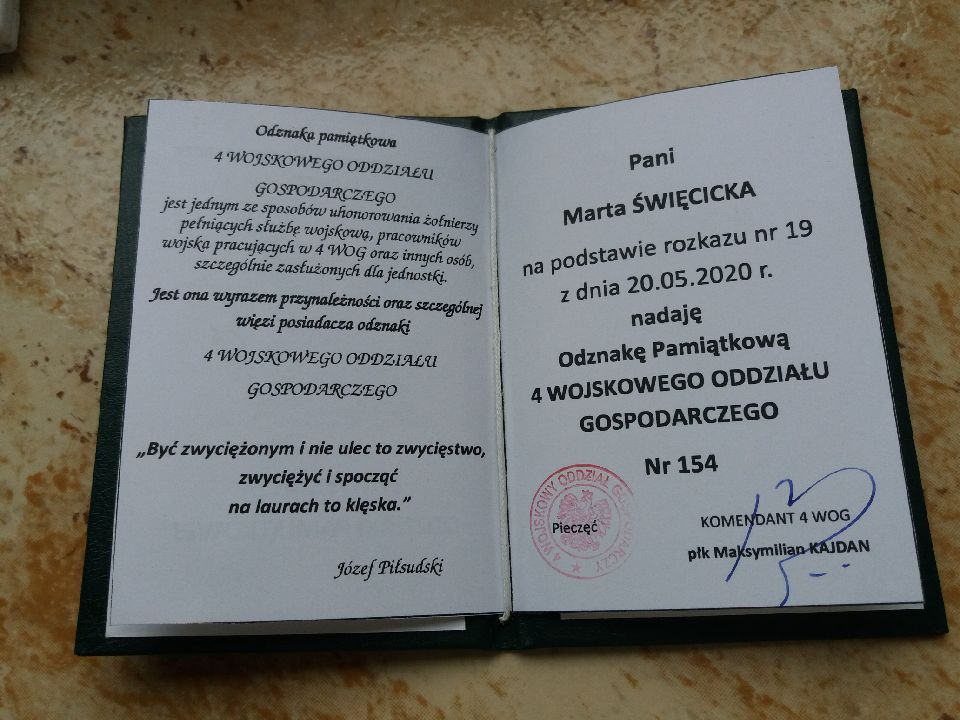 Odznaka pamiątkowa
4 WOJSKOWEGO ODDZIAŁU
GOSPODARCZEGO
jest jednym ze sposobów uhonorowania żołnierzy
pełniących służbę wojskową, pracowników
wojska pracujących w 4 WOG oraz innych osób,
szczególnie zasłużonych dla jednostki.
Jest ona wyrazem przynależności oraz szczególnej
więzi posiadacza odznaki
4 WOJSKOWEGO ODDZIAŁU
GOSPODARCZEGO
„Być zwyciężonym i nie ulec to zwycięstwo,
zwyciężyć i spocząć
na laurach to klęska.”
Józef Piłsudski
Pani
Marta ŚWIĘCICKA
na podstawie rozkazu nr 19
z dnia 20.05.2020 r.
nadaję
Odznakę Pamiątkową
4 WOJSKOWEGO ODDZIAŁU
GOSPODARCZEGO
Nr 154
4 WOJSKOWY ODDZIAŁ GOSPODARCZY
Pieczęć
KOMENDANT 4 WOG
płk Maksymilian KAJDAN